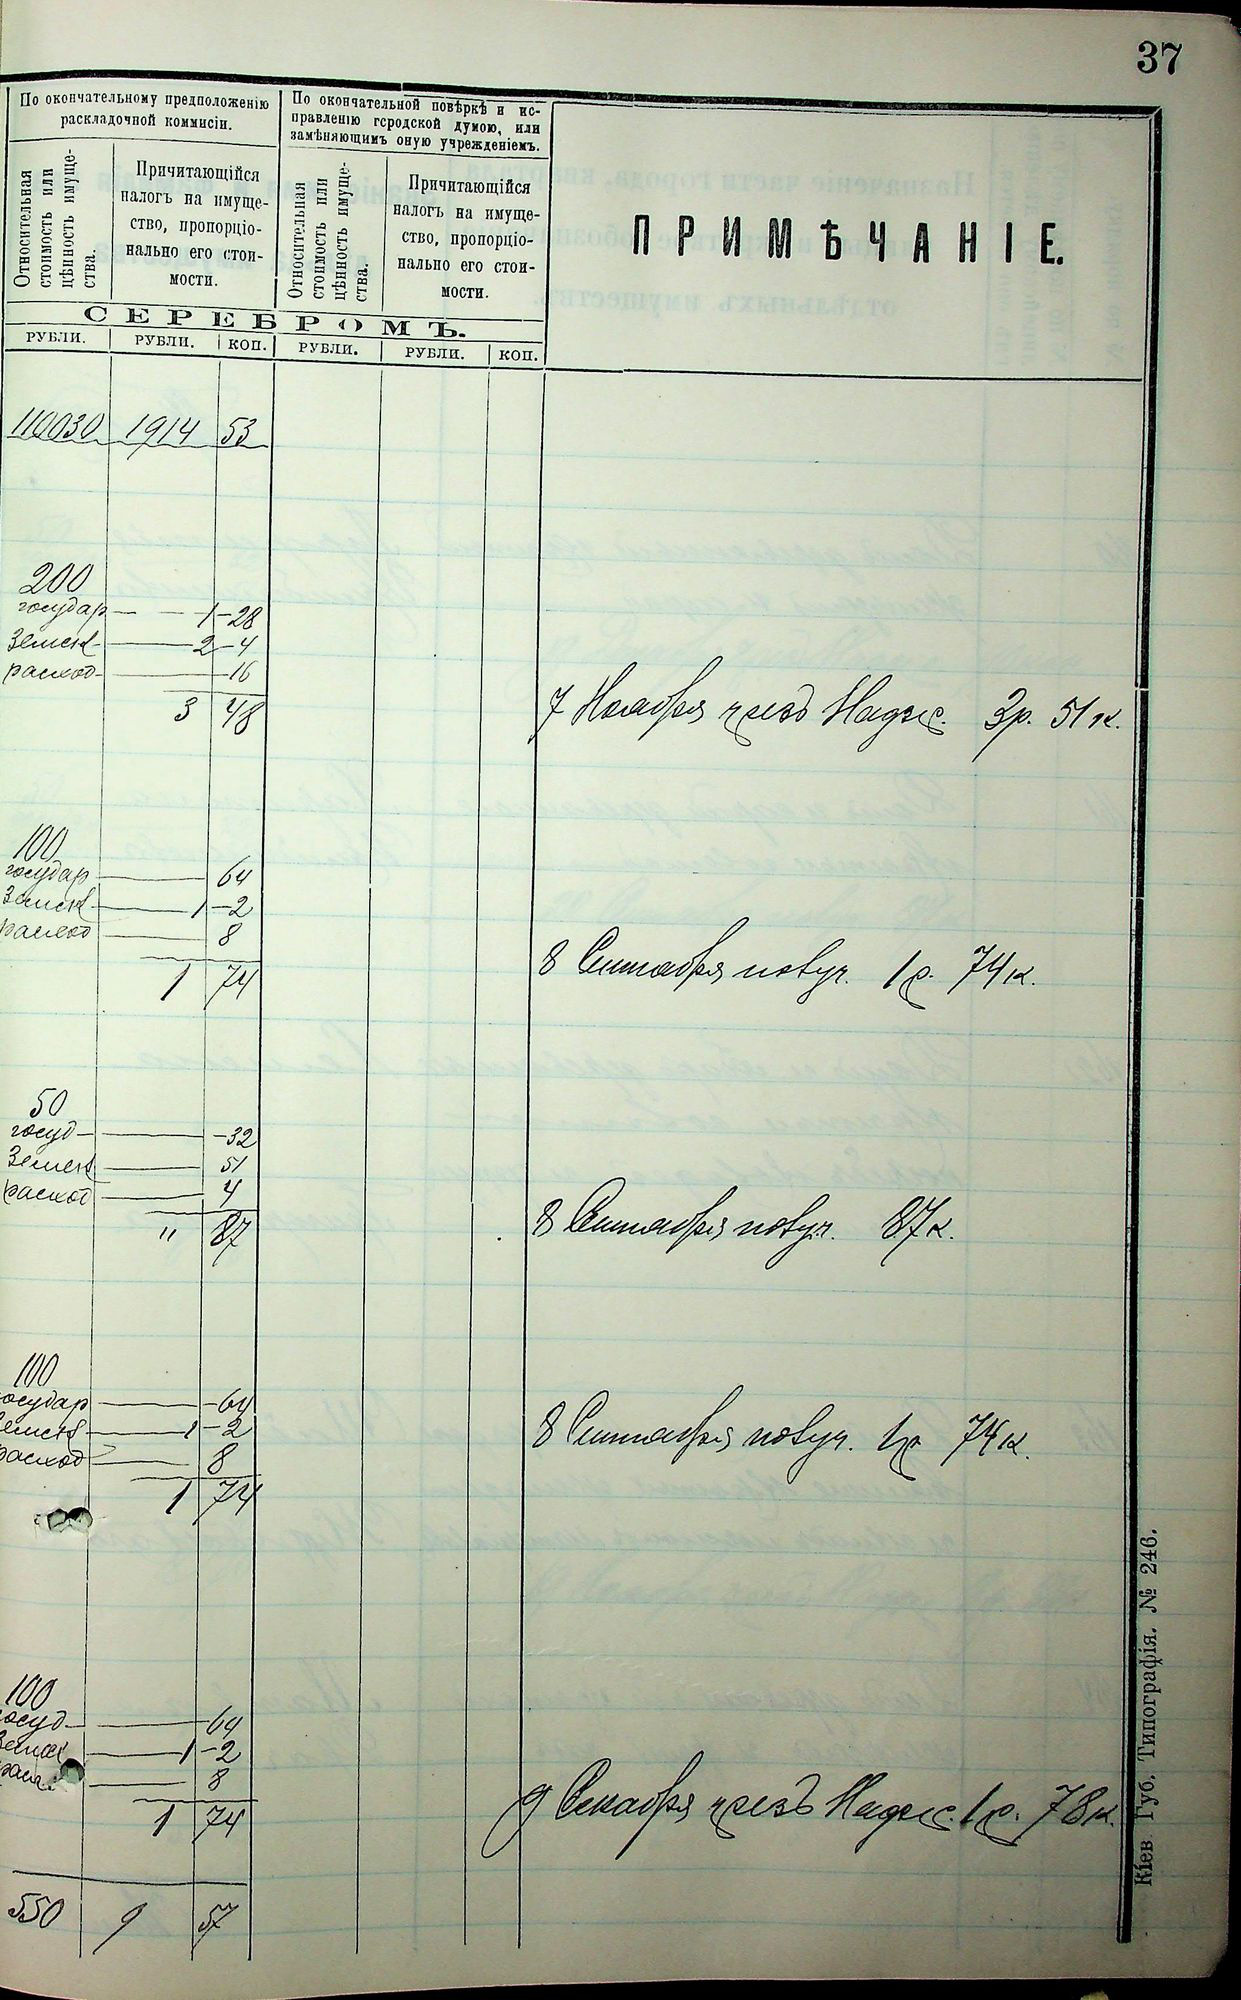 37
По окончательному предположенію
раскладочной коммисіи.
По окончательной повѣркѣ и ис-
правленію городской думою, или
замѣняющимъ оную учрежденіемъ.
Относительная
стоимость или
цѣнность имуще-
ства.
Причитающійся
налогъ на имуще-
ство, пропорціо-
нально его стои-
мости.
Относительная
стоимость или
цѣнность имуще-
ства.
Причитающійся
налогъ на имуще-
ство, пропорціо-
нально его стои-
мости.
ПРИМѢЧАНІЕ.
СЕРЕБРОМЪ.
РУБЛИ. РУБЛИ. КОП. РУБЛИ. РУБЛИ. КОП.
110030 1914 53
200
государ — — 1 - 28
Земск — 2 - 4
расход — 16
3 48
7 Ноября чрезъ Надзс. 3р. 51 к.
100
государ — 64
Земск — 1 - 2
расход — 8
1 74
8 Сентября 1 р. 74 к.
50
госуд — 32
Земск — 51
расход — 4
" 87
8 Сентября 87 к.
100
государ — 64
Земск — 1 - 2
расход — 8
1 74
8 Сентября 1р 74 к.
100
госуд — 64
Земск — 1 - 2
8
1 74
9 Декабря чрезъ Надзс. 1 р. 78 к.
550 9 57
Кіев. Губ. Типографія. № 246.